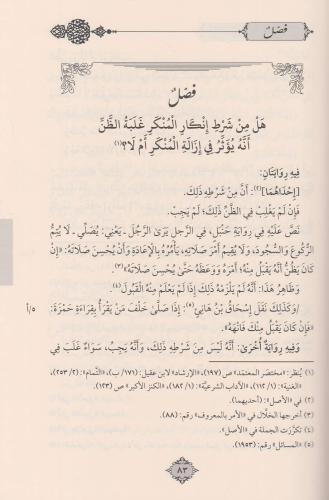 فصل
فَصْلٌ
هَلْ مِنْ شَرْطِ إِنْكَارِ الْمُنْكَرِ غَلَبَةُ الظَّنِّ
أَنَّهُ يُؤَثِّرُ فِي إِزَالَةِ الْمُنْكَرِ أَمْ لَا؟(١)
فِيهِ رِوَايَتَانِ:
[إِحْدَاهُمَا](٢): أَنَّ مِنْ شَرْطِهِ ذَلِكَ.
فَإِنْ لَمْ يَغْلِبْ فِي الظَّنِّ ذَلِكَ؛ لَمْ يَجِبْ.
نَصَّ عَلَيْهِ فِي رِوَايَةِ حَنْبَلٍ، فِي الرَّجُلِ يَرَىٰ الرَّجُلَ - يَعْنِي: يُصَلِّي - لَا يُتِمُّ
الرُّكُوعَ وَالسُّجُودَ، وَلَا يُقِيمُ أَمْرَ صَلَاتِهِ، يَأْمُرُهُ بِالْإِعَادَةِ وَأَنْ يُحْسِنَ صَلَاتَهُ: «إِنْ
كَانَ يَظُنُّ أَنَّهُ يَقْبَلُ مِنْهُ؛ أَمَرَهُ وَوَعَظَهُ حَتَّىٰ يُحْسِنَ صَلَاتَهُ»(٣)
وَظَاهِرُ هَذَا: أَنَّهُ لَمْ يَلْزَمْهُ ذَلِكَ إِذَا لَمْ يَعْلَمْ مِنْهُ الْقَبُولَ(٤).
/وَكَذَلِكَ نَقَلَ إِسْحَاقُ بْنُ هَانِئٍ(٥): إِذَا صَلَّىٰ خَلْفَ مَنْ يَقْرَأُ بِقِرَاءَةِ حَمْزَةَ: ٥/أ
«فَإِنْ كَانَ يَقْبَلُ مِنْكَ فَانْهَهُ».
وَفِيهِ رِوَايَةٌ أُخْرَىٰ: أَنَّهُ لَيْسَ مِنْ شَرْطِهِ ذَلِكَ، وَأَنَّهُ يَجِبُ، سَوَاءٌ غَلَبَ فِي
(١) يُنظر: «مختصر المعتمد» ص (١٩٧)، «الإرشاد» لابن عقيل: (١٧١/ب)، «التَّمام»: (٢/ ٢٥٣)،
«الغنية»: (١/ ١١٢)، «الآداب الشرعيَّة»: (١/ ١٨٢)، «الكنز الأكبر» ص (١٢٣).
(٢) في «الأصل»: (أحديهما).
(٣) أخرجها الخلَّال في «الأمر بالمعروف» رقم: (٨٨).
(٤) تكرَّرَت الجملة في «الأصل».
(٥) «المسائل» رقم: (١٩٥٣).
٨٣